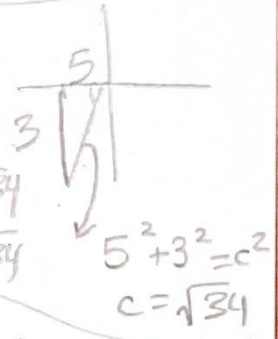 5
3
34
34
5²+3²=c²
c=√34